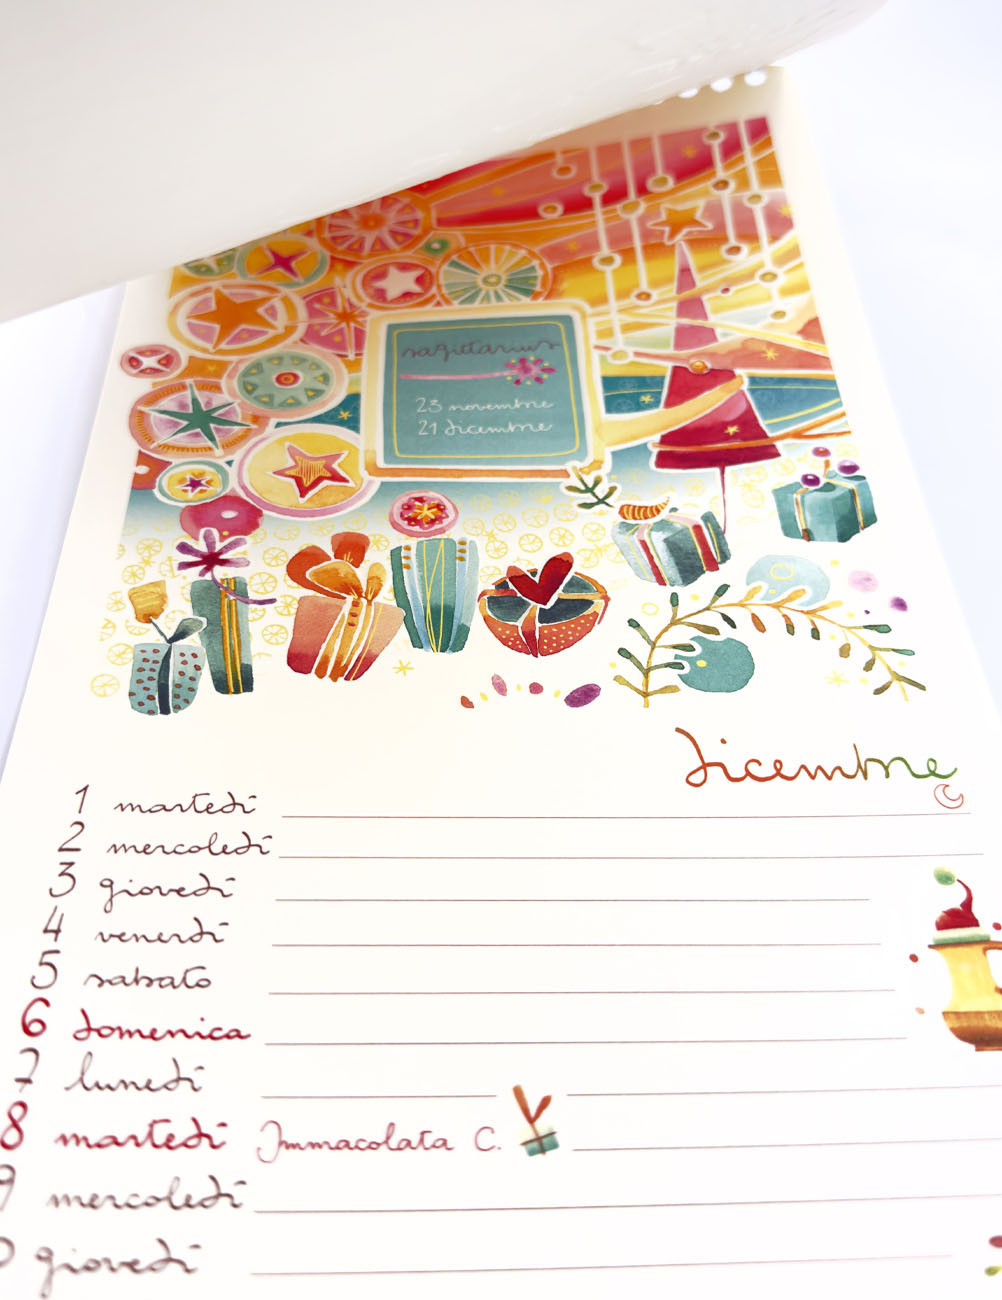 sagittarius
23 novembre
21 dicembre
dicembre
1 martedì
2 mercoledì
3 giovedì
4 venerdì
5 sabato
6 domenica
7 lunedì
8 martedì Immacolata C.
9 mercoledì
0 giovedì